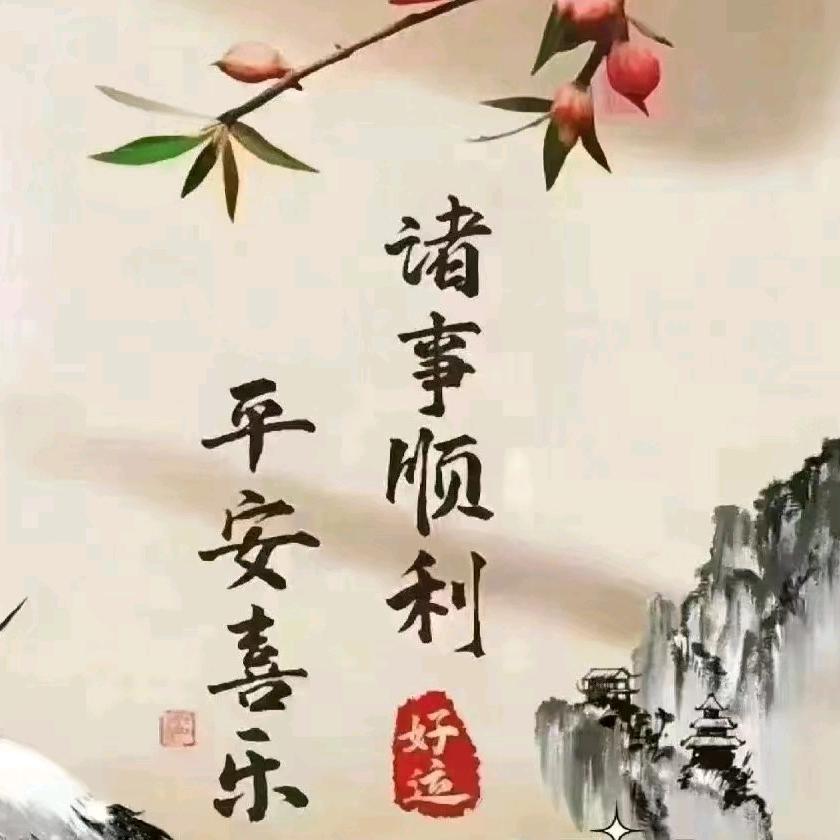 诸事顺利
好运
平安喜乐